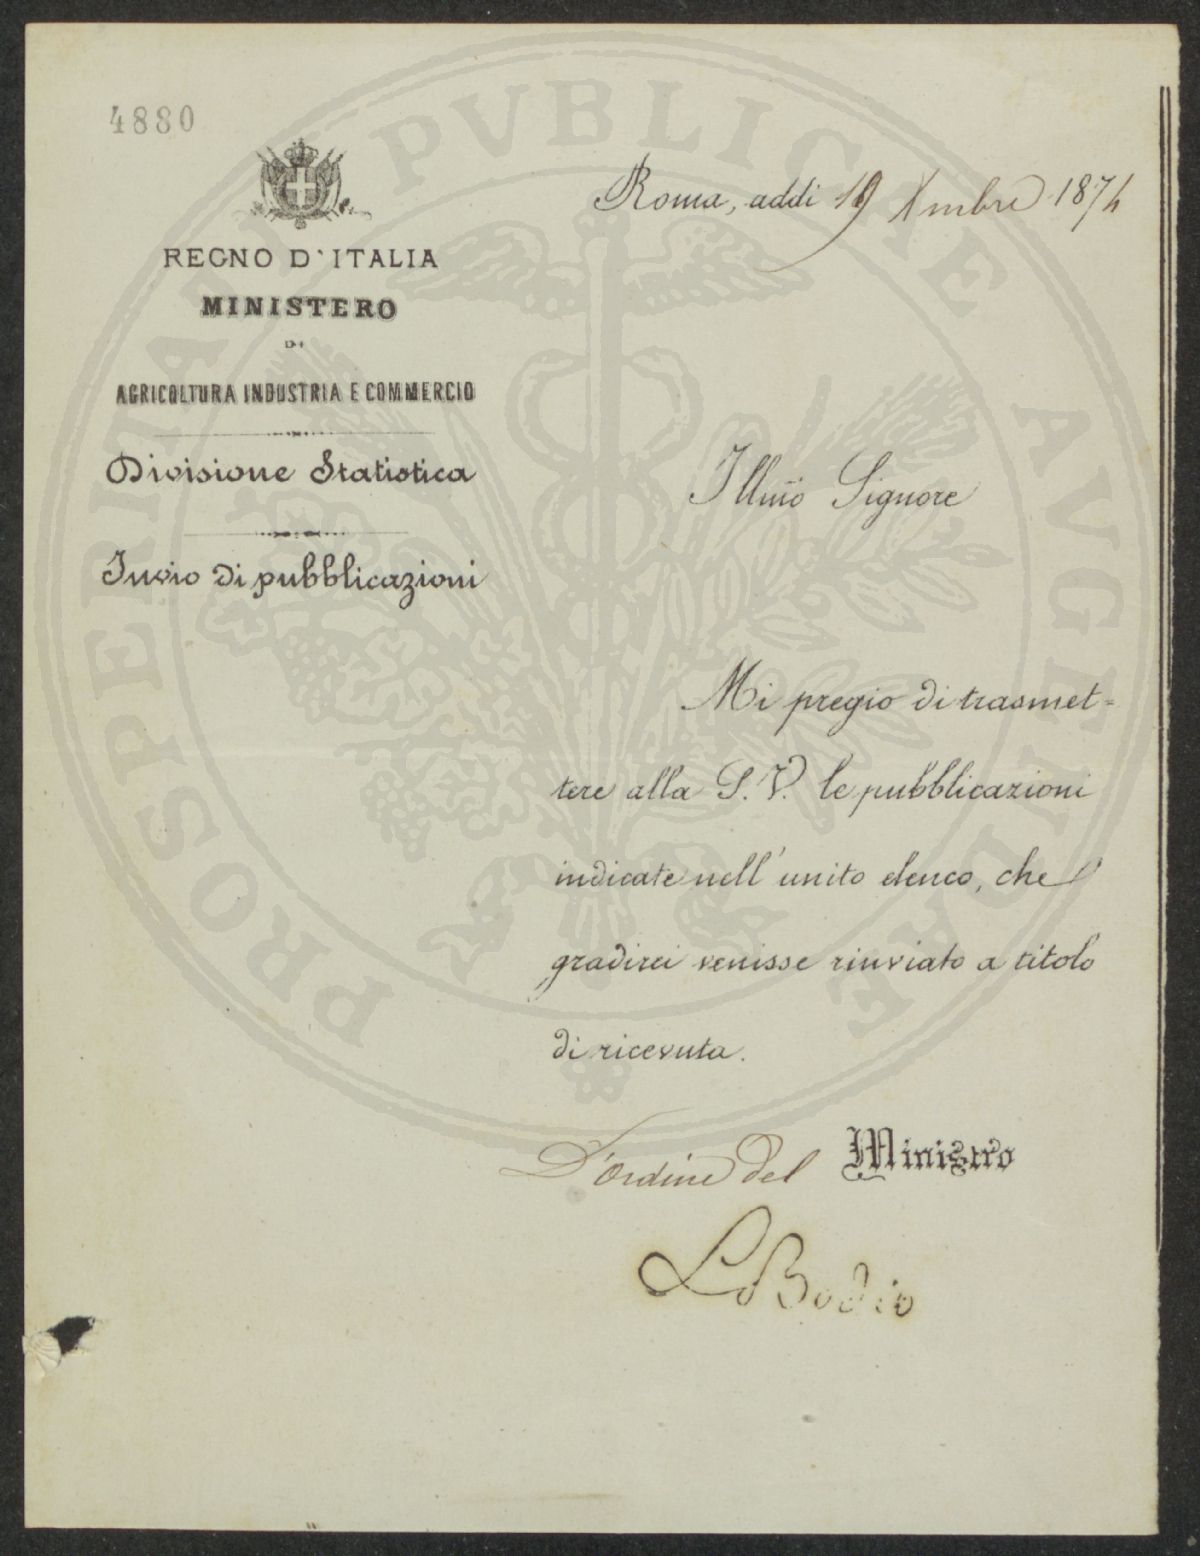 4880
Roma, addì 19 Xmbre 1874
REGNO D'ITALIA
MINISTERO
DI
AGRICOLTURA INDUSTRIA E COMMERCIO
Divisione Statistica
Invio di pubblicazioni
Illmo Signore
Mi pregio di trasmet-
tere alla S. V. le pubblicazioni
indicate nell'unito elenco, che
gradirei venisse rinviato a titolo
di ricevuta.
D'ordine del Ministro
L. Bodio
PROSPERITATI PVBLICAE AVGENDAE